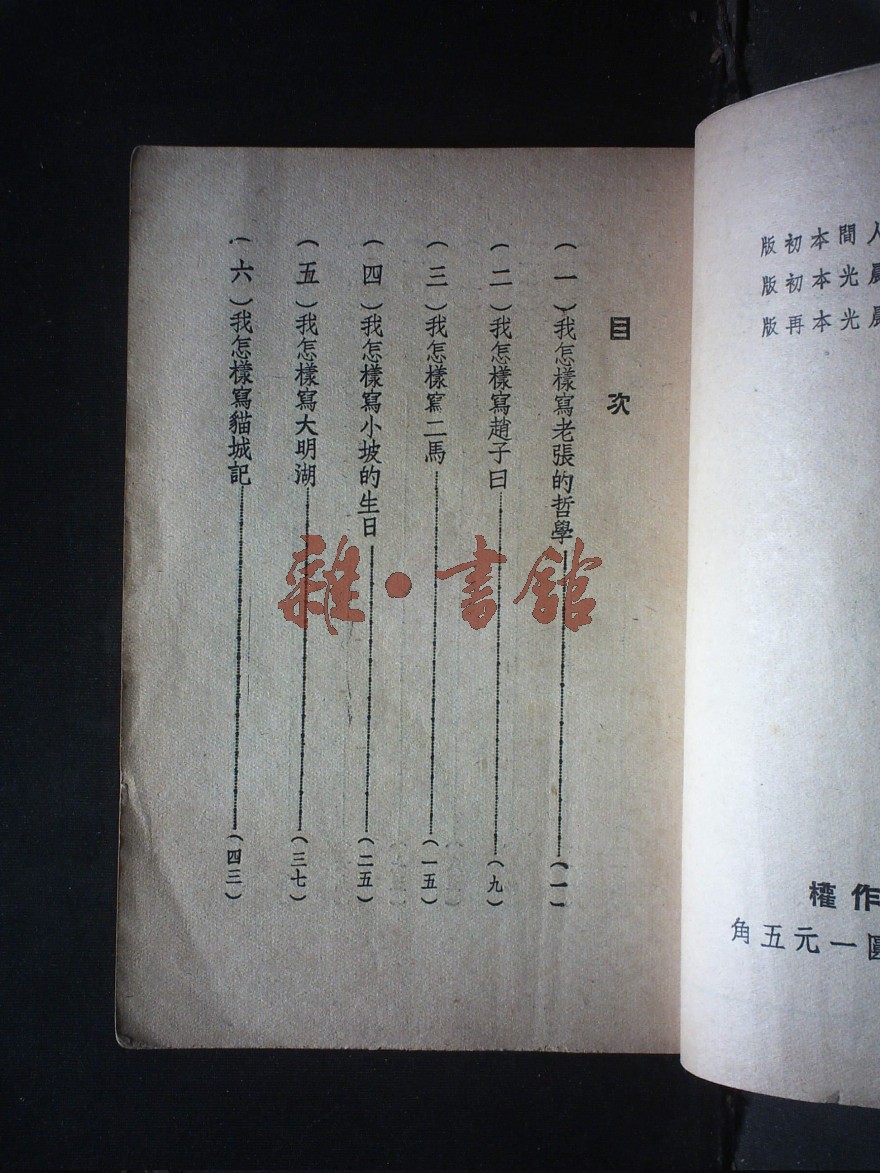 人間本初版
晨光本初版
晨光本再版
作權
一元五角
目次
(一)我怎樣寫老張的哲學(一)
(二)我怎樣寫趙子曰(九)
(三)我怎樣寫二馬(一五)
(四)我怎樣寫小坡的生日(二五)
(五)我怎樣寫大明湖(三七)
(六)我怎樣寫貓城記(四三)
雜·書館